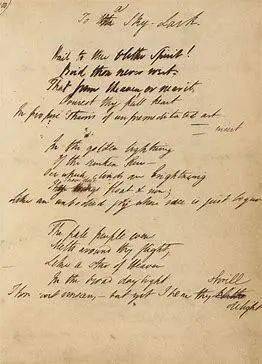 To the a Sky-Lark
Hail to thee blithe Spirit!
Bird thou never wert.
That from Heaven or near it
Pourest thy full heart
In profuse strains of unpremeditated art
insert
In the golden lightning
Of the sunken Sun—
O'er which clouds are brightning
Thou dost float & run;
Like an unbodied joy whose race is just begun
The pale purple even
Melts around thy flight,
Like a star of Heaven
In the broad daylight
Thou art unseen,—but yet I hear thy shrill
delight